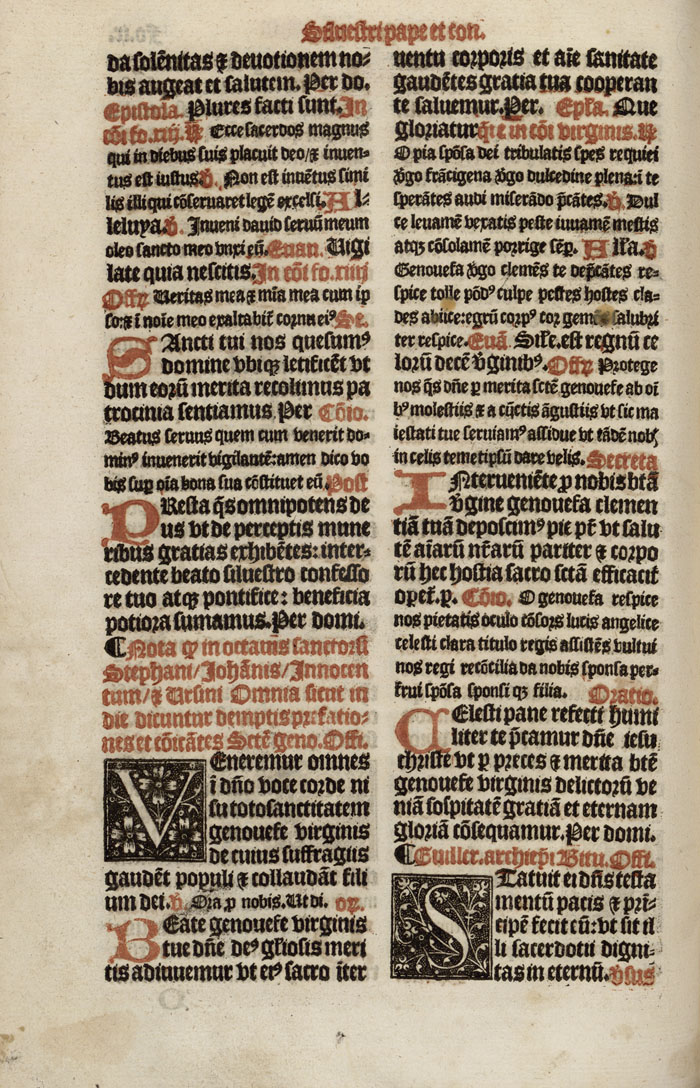 Siluestri pape et con.
da solēnitas & deuotionem no-
bis augeat et salutem. Per do.
Epistola. Plures facti sunt. In
cōi fo.xiiij. R Ecce sacerdos magnus
qui in diebus suis placuit deo/& inuen-
tus est iustus. V. Non est inuētus simi
lis illi qui cōseruaret legē excelsi. Al-
leluya. V. Inueni dauid seruū meum
oleo sancto meo vnxi eū. Euan. Uigi
late quia nescitis. In cōi fo.xiiij
Offr Ueritas mea & mīa mea cum ip
so:& ī noīe meo exaltabit̄ cornu eiꝰ Se.
SAncti tui nos quesumꝰ
domine vbiqꝫ letificēt vt
dum eorū merita recolimus pa
trocinia sentiamus Per Cōio.
Beatus seruus quem cum venerit do-
minꝰ inuenerit vigilantē:amen dico vo
bis suꝑ oīa bona sua cōstituet eū. Post
PResta q̄s omnipotens de
us vt de perceptis mune
ribus gratias exhibētes: inter-
cedente beato siluestro confesso
re tuo atqꝫ pontifice: beneficia
potiora sumamus. Per domi.
¶ Nota ꝙ in octauis sanctorū
Stephani/Johānis/Innocen
tum/& Ursini Omnia sicut in
die dicuntur demptis prefatio-
nes et cōicātes Sctē geno. Offi.
VEneremur omnes
ī dn̄o voce corde ni
su toto sanctitatem
genouefe virginis
de cuius suffragiis
gaudēt populi & collaudāt fili
um dei. V. Ora ꝓ nobis. Ut di. or.
BEate genouefe virginis
tue dn̄e deꝰ gl̄iosis meri
tis adiuuemur vt eiꝰ sacro īter
uentu corporis et aīe sanitate
gaudētes gratia tua cooperan
te saluemur. Per. Epl̄a. Que
gloriatur q̄it in cōi virginis. R
O pia spōsa dei tribulatis spes requiei
v̄go frācigena v̄go dulcedine plena: ī te
sperātes audi miserādo p̄cātes. V. Dul
ce leuamē vexatis peste iuuamē mestis
atqꝫ cōsolamē porrige sēꝑ. Alla. V
Genouefa v̄go clemēs te dep̄cātes re-
spice tolle pōdꝰ culpe pestes hostes cla-
des abiice:egrū corpꝰ cor gemēs salubri
ter respice. Euā. Sil̄e. est regnū ce
lorū decē v̄ginibꝰ. Offr Protege
nos q̄s dn̄e ꝑ merita sctē genouefe ab oī
bꝰ molestiis & a cūctis āgustiis vt sic ma
iestati tue seruiamꝰ assidue vt eādē nob
in celis temetipsū dare velis. Secreta
INterueniēte ꝓ nobis btā
v̄gine genouefa clemen
tiā tuā deposcimꝰ pie pr̄ vt salu
tē aīarū nr̄arū pariter & corpo
rū hec hostia sacro sctā efficacit̄
oꝑet̄. ꝑ. Cōio. O genouefa respice
nos pietatis oculo cōsors lucis angelice
celesti clara titulo regis assistēs vultui
nos regi recōcilia da nobis sponsa per-
frui spōsa sponsi qꝫ filia. Oratio.
CElesti pane refecti humi
liter te p̄camur dn̄e iesu
christe vt ꝑ preces & merita btē
genouefe virginis delictorū ve
niā sospitatē gratiā et eternam
gloriā cōsequamur. Per domi.
¶ Guiller. archiep̄i Bitu. Offi.
STatuit ei dn̄s testa
mentū pacis & prī-
cipē fecit eū: vt sit il
li sacerdotii digni-
tas in eternū. v̄sus